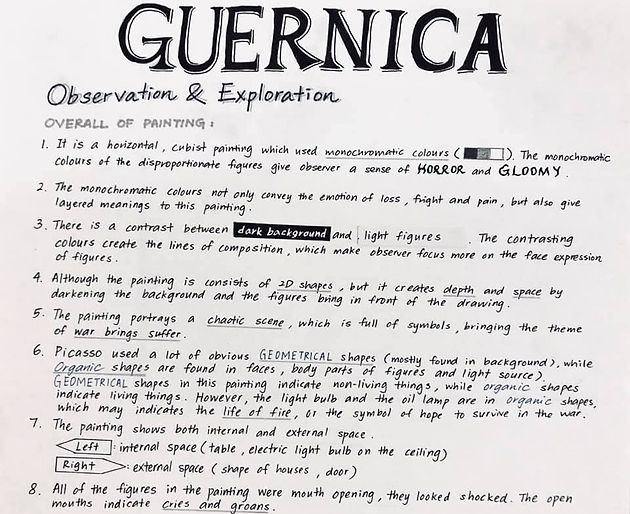 GUERNICA
Observation & Exploration
OVERALL OF PAINTING:
1. It is a horizontal, cubist painting which used monochromatic colours ( ). The monochromatic
colours of the disproportionate figures give observer a sense of HORROR and GLOOMY.
2. The monochromatic colours not only convey the emotion of loss, fright and pain, but also give
layered meanings to this painting.
3. There is a contrast between dark background and light figures. The contrasting
colours create the lines of composition, which make observer focus more on the face expression
of figures.
4. Although the painting is consists of 2D shapes, but it creates depth and space by
darkening the background and the figures bring in front of the drawing.
5. The painting portrays a chaotic scene, which is full of symbols, bringing the theme
of war brings suffer.
6. Picasso used a lot of obvious GEOMETRICAL shapes (mostly found in background), while
Organic shapes are found in faces, body parts of figures and light source).
GEOMETRICAL shapes in this painting indicate non-living things, while organic shapes
indicate living things. However, the light bulb and the oil lamp are in organic shapes,
which may indicates the life of fire, or the symbol of hope to survive in the war.
7. The painting shows both internal and external space.
Left : internal space (table, electric light bulb on the ceiling)
Right : external space (shape of houses, door)
8. All of the figures in the painting were mouth opening, they looked shocked. The open
mouths indicate cries and groans.